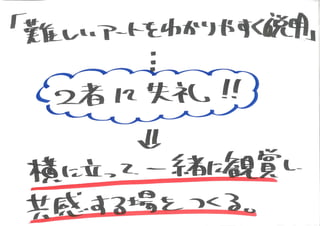 「難しいアートをわかりやすく説明」
2者に失礼!!
横に立って一緒に観賞し
共感する場をつくる。